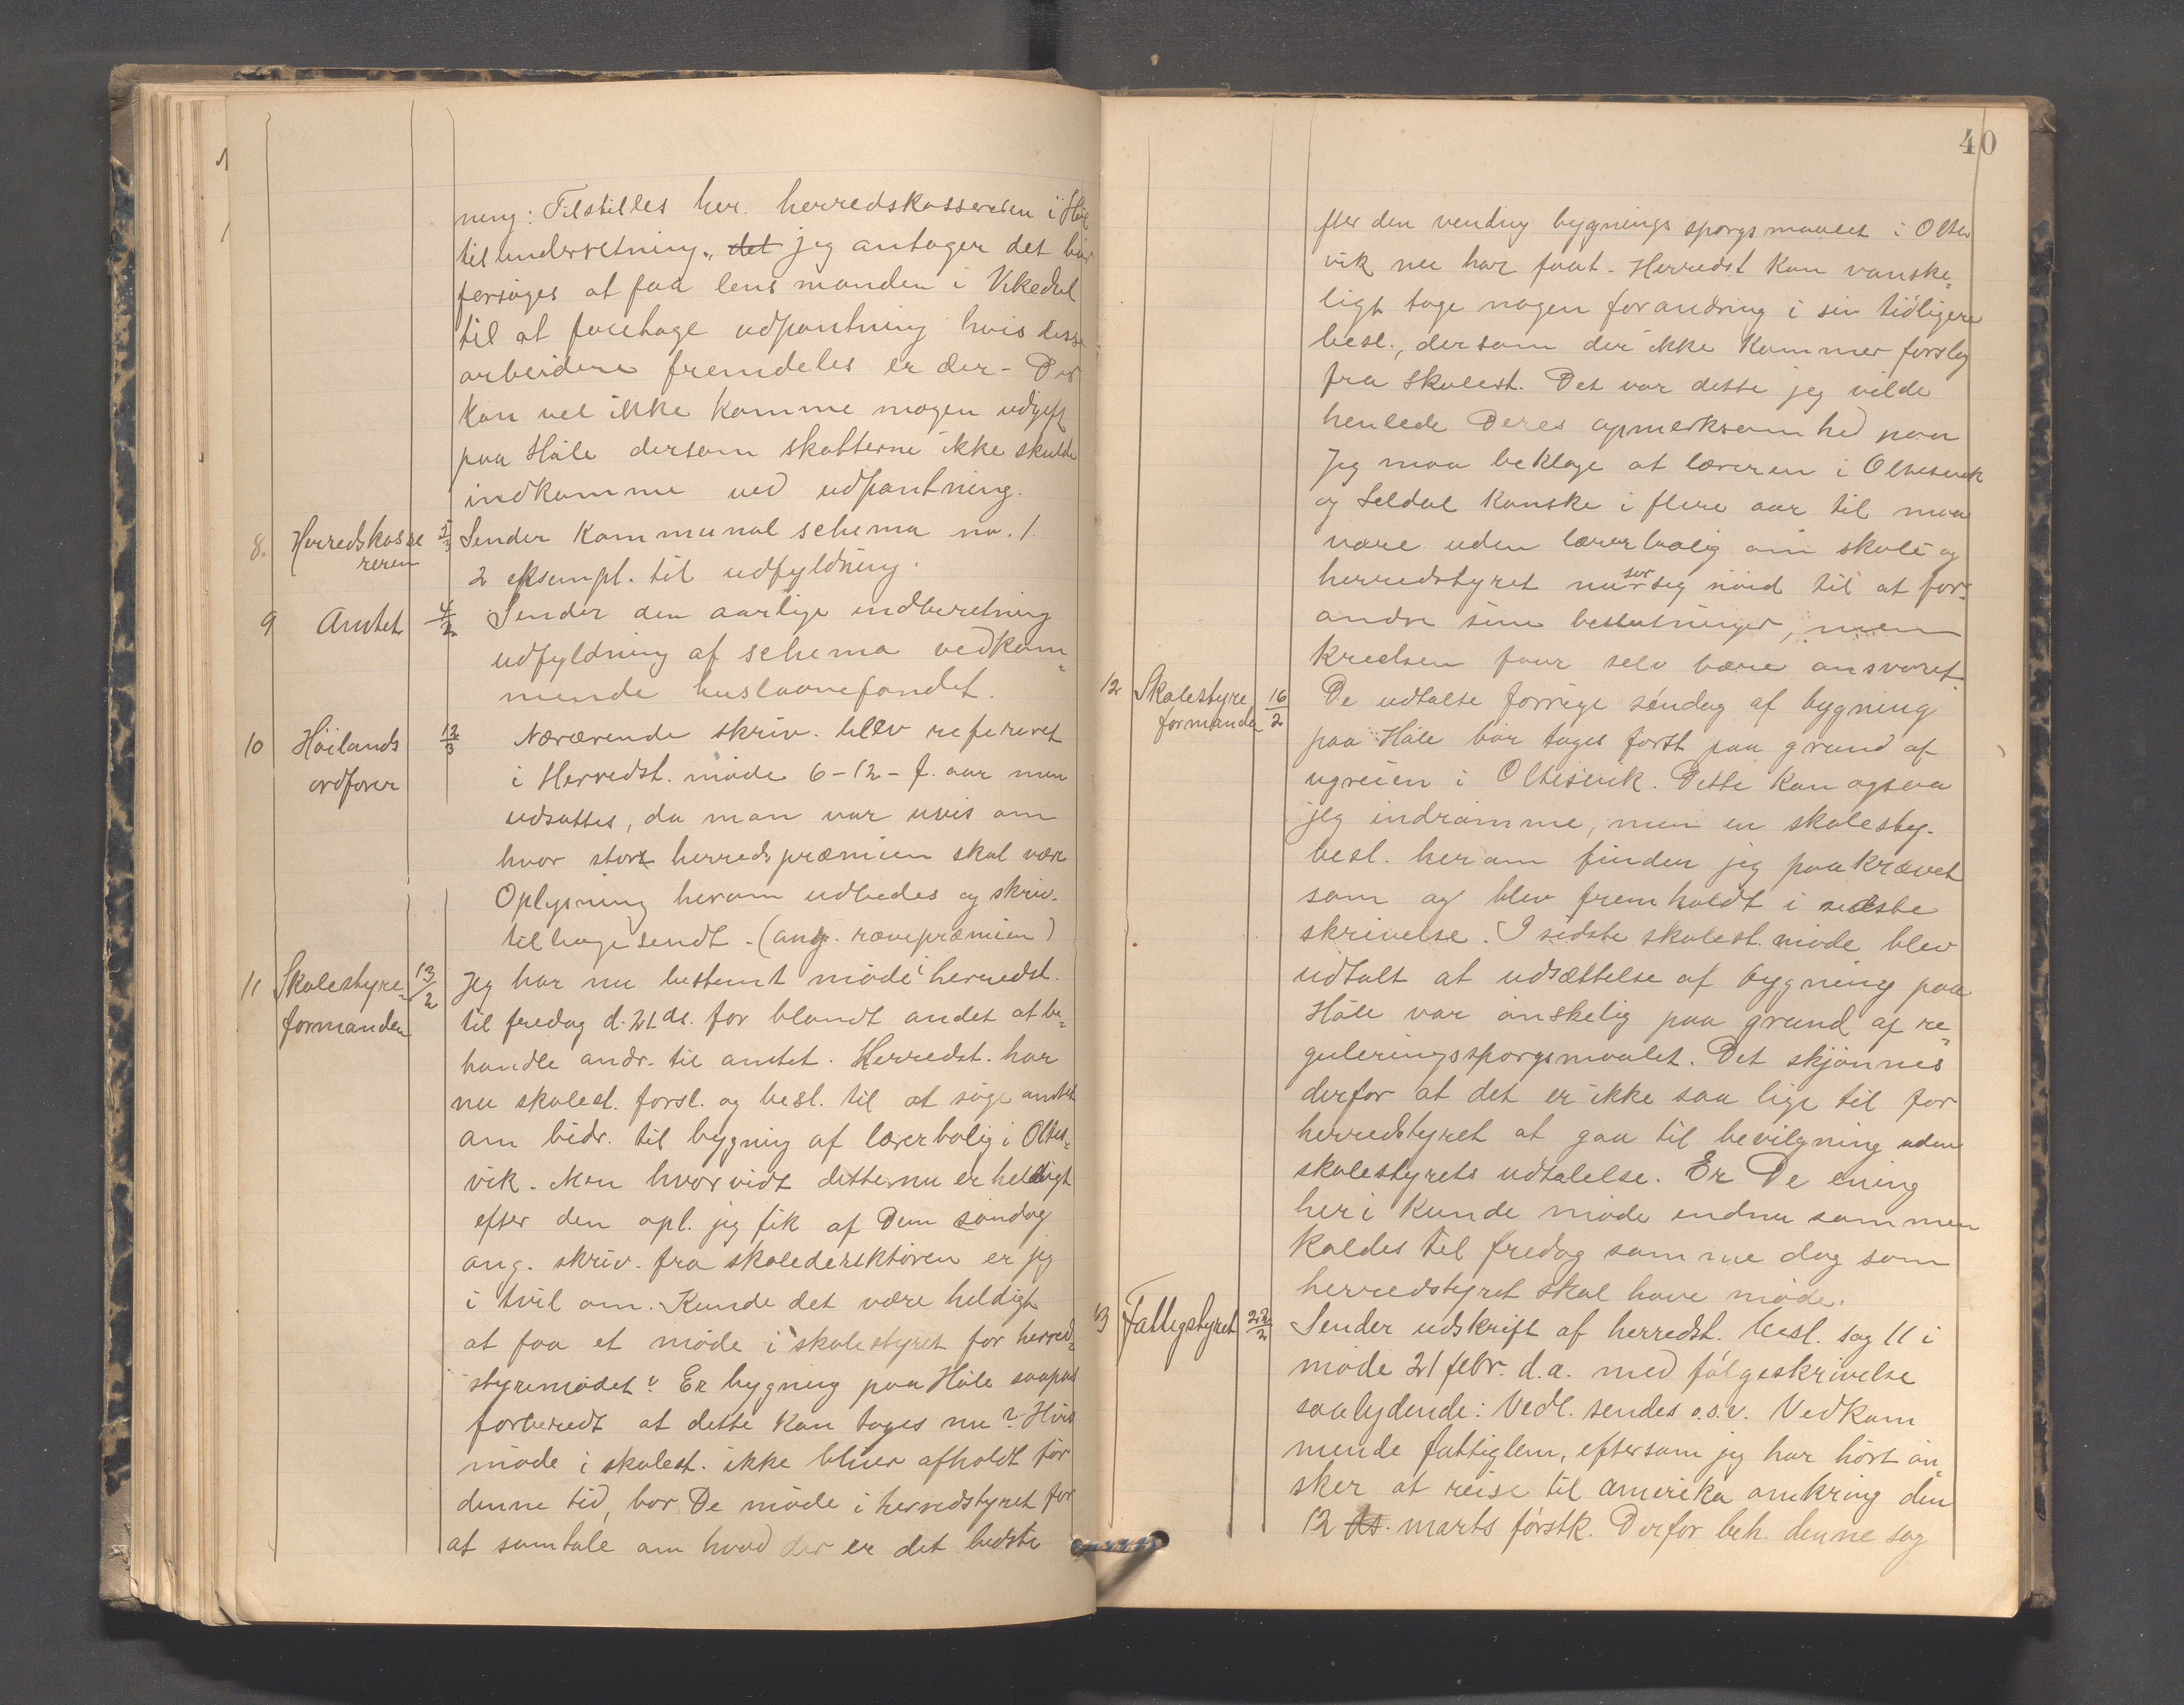 ning: Tilstilles her. herredskassereren i Høl
til underretning., det jeg antager det bør
forsøges at faa lensmanden i Vikedal
til at foretage udpantning hvis disse
arbeidere fremdeles er der - Der
kan vel ikke komme nogen udgift
paa Håle dersom skatterne ikke skulde
indkomme ved udpantning.
8. Herredskasse reren 5/3 Sender Kommunal schema no. 1.
2 eksempl. til udfyldning.
9 Amtet 4/2 Sender den aarlige indberetning
udfyldning af schema vedkom=
mende huslaanefondet.
10 Höilands ordfører 12/3 Nærærende skriv. blev refereret
i Herredst. møde 6-12- f. aar men
udsattes, da man var uvis om
hvor stort herreds præmien skal være
Oplysning herom udbedes og skriv.
tilbagesendt. (ang. rævepræmien)
11 Skolestyre= formanden 13/2 Jeg har nu bestemt møde i herredst.
til fredag d. 21 ds. for blandt andet at be=
handle andr. til amtet. Herredst. har
nu skolest. forsl. og besl. til at søge amtet
om bidr. til bygning af lærerbolig i Oltes=
vik. Men hvorvidt dette nu er heldigt
efter den opl. jeg fik af Dem søndag
ang. skriv. fra skoledirektøren er jeg
i tvil om. Kunde det være heldigt
at faa et møde i skolestyret før herred=
styremødet? Er bygning paa Håle saapas
forberedt at dette kan tages nu? Hvis
møde i skolest. ikke bliver afholdt før
denne tid, bør De møde i herredstyret for
at samtale om hvad der er det bedste
40
fter den vending bygnings spørgsmaalet i Oltes
vik nu har faat. Herredst kan vanske=
ligt tage nogen forandring i sin tidligere
besl., dersom der ikke kommer forslag
fra skolest. Det var dette jeg vilde
henlede Deres opmerksomhed paa
Jeg maa beklage at læreren i Oltesvik
og Seldal kanske i flere aar til maa
være uden lærerbolig om skole og
herredstyret nu ser sig nöid til at for=
andre sine beslutninger, men
kredsen faar selv bære ansvaret.
12 Skolestyre formanden 16/2 De udtalte forrige søndag af bygning
paa Håle bør tages först paa grund af
ugreien i Oltesvik. Dette kan ogsaa
jeg indrømme, men en skolesty.
besl. herom finder jeg paakrævet
som og blev fremholdt i sidste
skrivelse. I sidste skolest. møde blev
udtalt at udsættelse af bygning paa
Håle var ønskelig paa grund af re=
guleringsspørgsmaalet. Det skjønnes
derfor at det er ikke saa lige til for
herredstyret at gaa til bevilgning uden
skolestyrets udtalelse. Er De enig
heri kunde møde endnu sammen
kaldes til fredag samme dag som
herredstyret skal have møde.
13 Fattigstyret 22/2 Sender udskrift af herredst. besl. sag 11 i
møde 21 febr. d.a. med følgeskrivelse
saalydende: Vedl. sendes o.s.v. Vedkom
mende fattiglem, eftersom jeg har hørt øn=
sker at reise til Amerika omkring den
12 ds. marts førstk. Derfor beh. denne sag